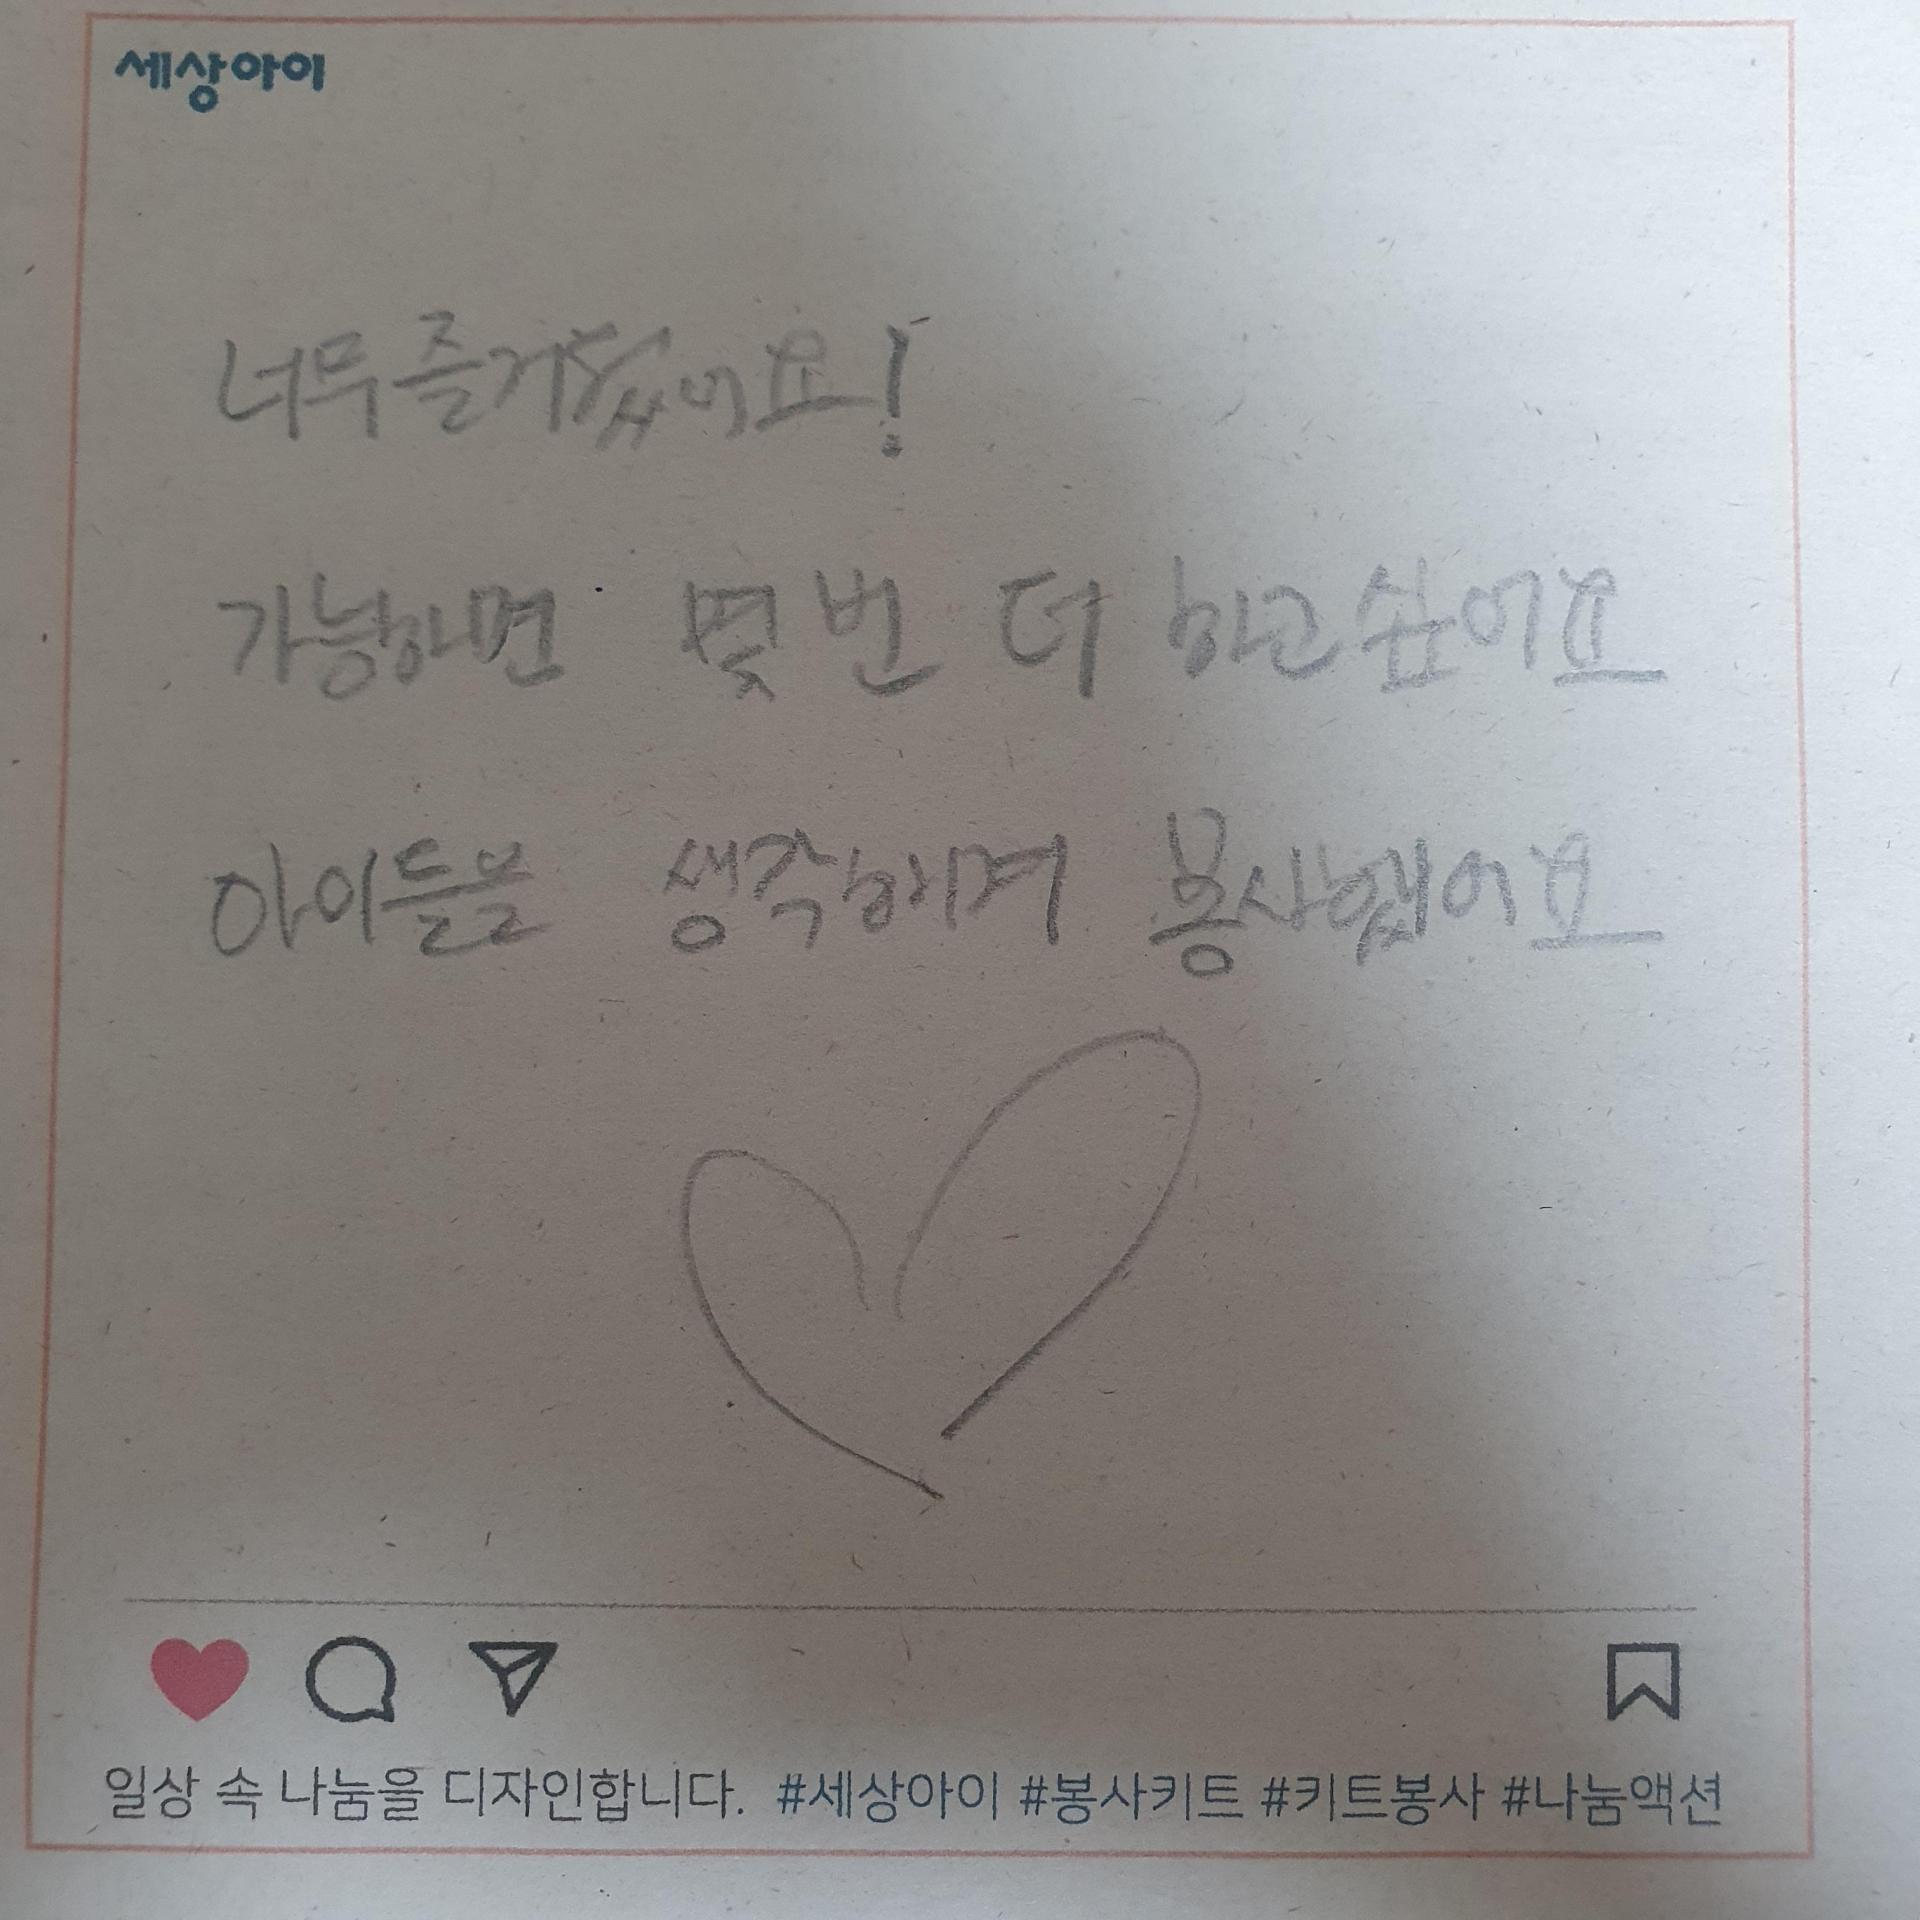 세상아이
너무 즐거웠어요!
가능하면 몇 번 더 하고싶어요
아이들을 생각하며 봉사했어요
일상 속 나눔을 디자인합니다. #세상아이 #봉사키트 #키트봉사 #나눔액션